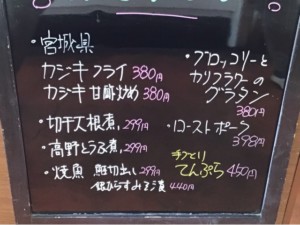 ・宮城県
カジキフライ 380円
カジキ甘酢炒め 380円
・切干大根煮 299円
・高野とうふ煮 299円
・焼魚 鮭切出し 299円
銀だらすみそ漬 440円
・ブロッコリーと
カリフラワーの
グラタン
380円
・ローストポーク
398円
手づくり
てんぷら 450円